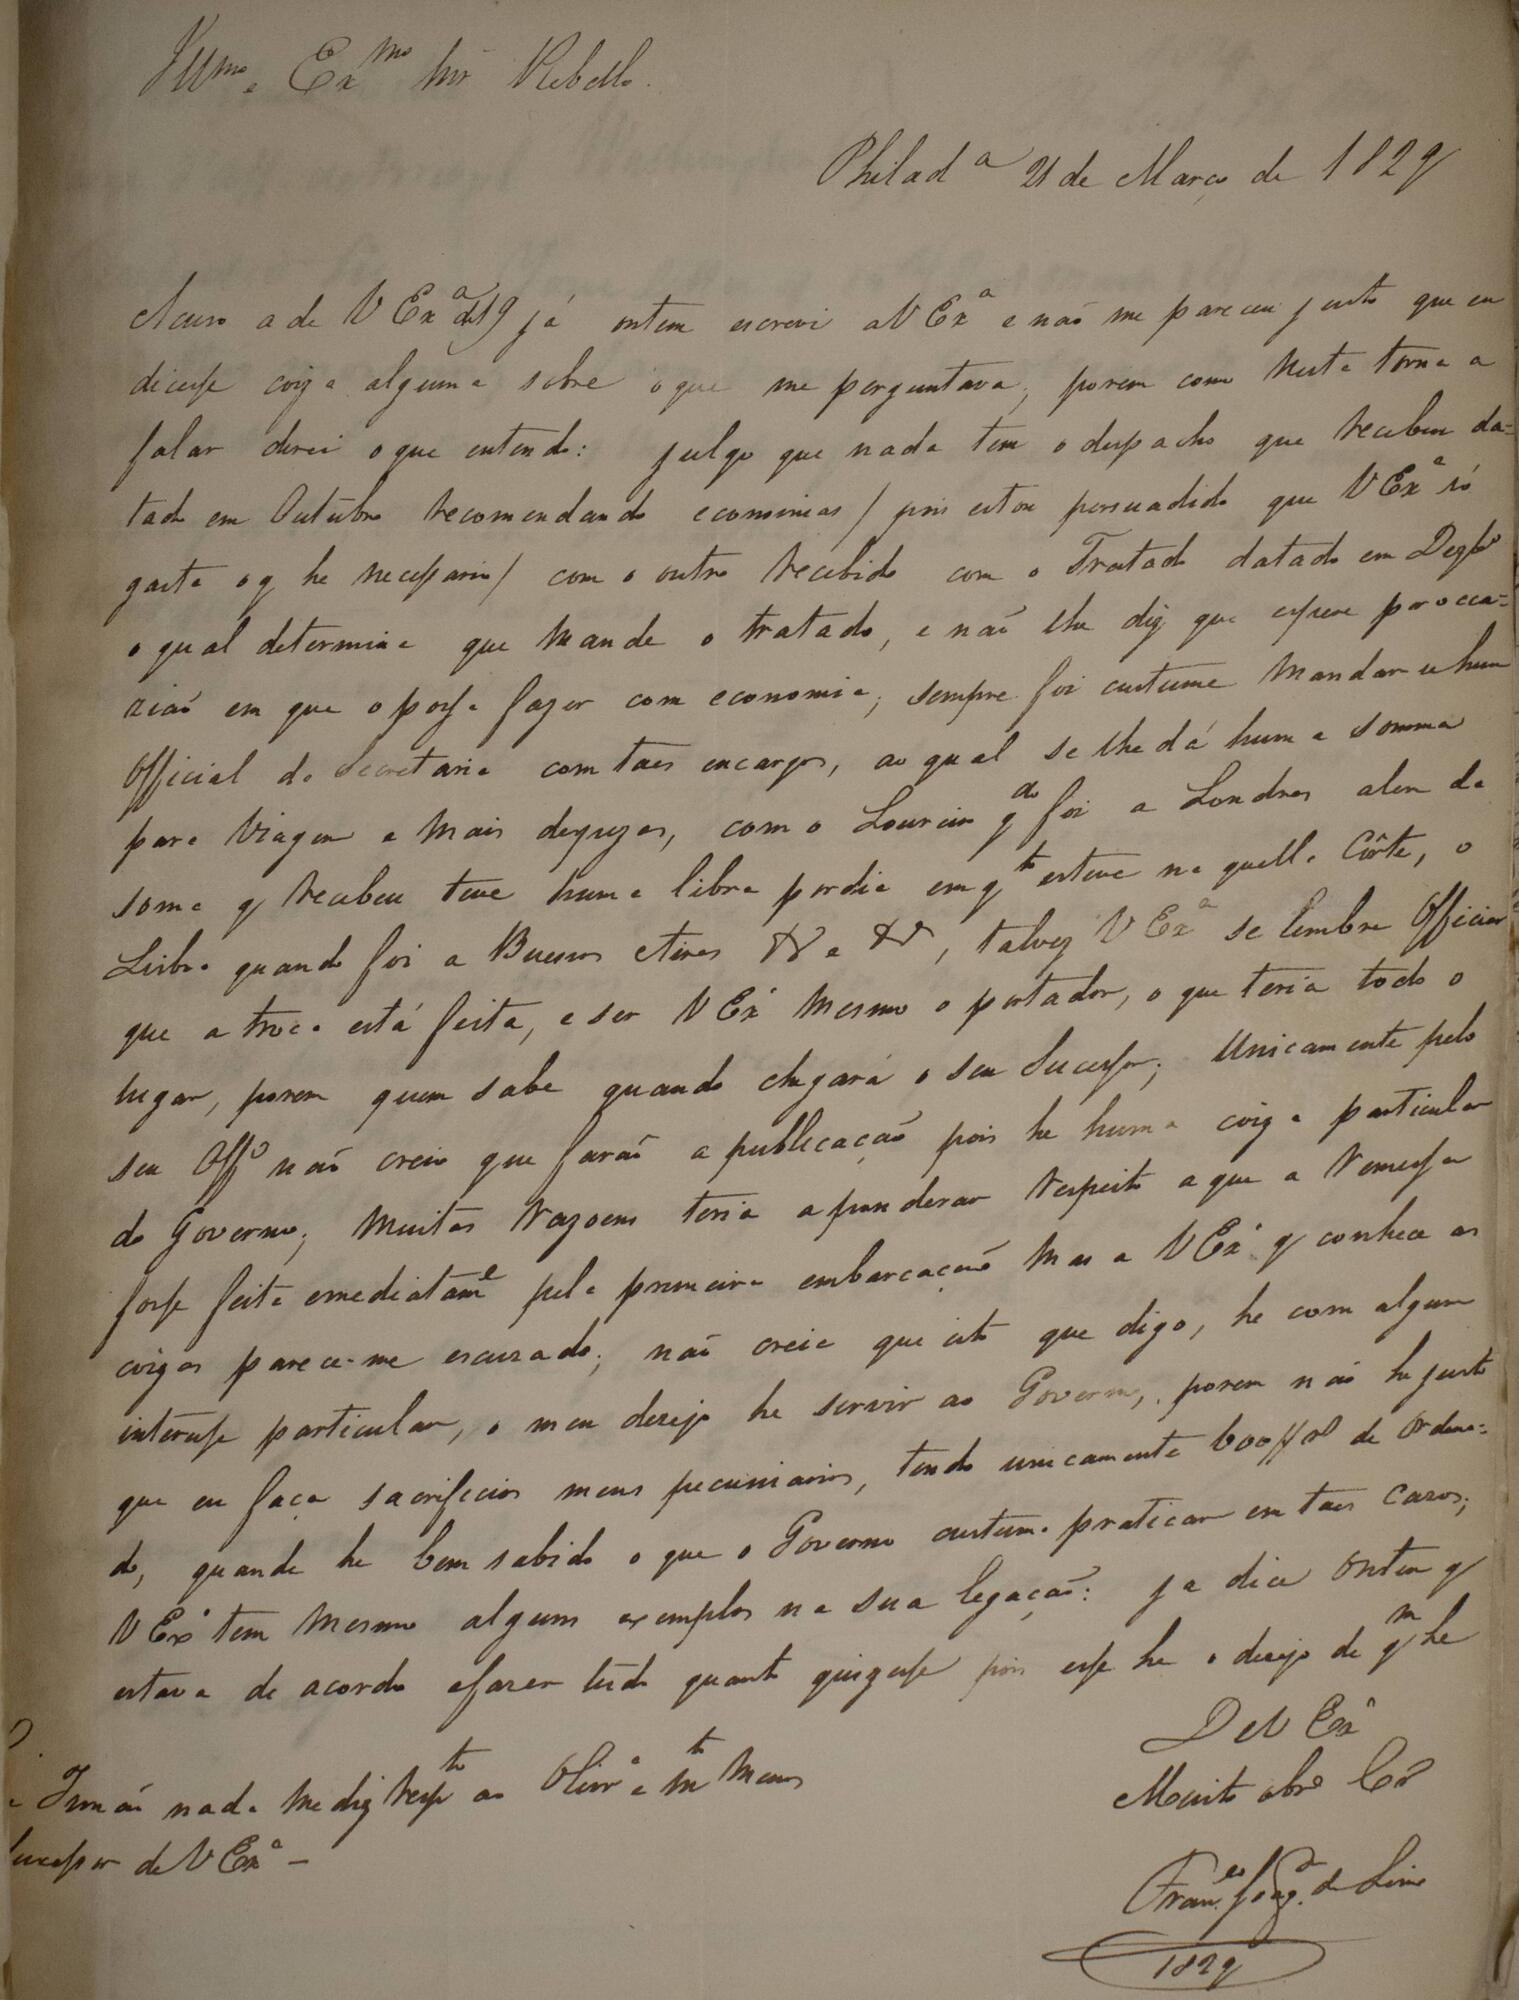 Illmo e Exmo Snr Rebello.
Philada 21 de Março de 1829
Acuso a de V Exa de 19 já ontem escrevi a V Exa e não me pareceu justo que eu
dicesse coiza alguma sobre o que me perguntava, porem como nesta torna a
falar direi o que entendo: julgo que nada tem o despacho que recebeu da=
tado em Outubro recomendando economias / pois estou persuadido que V Exa só
gasta o q he necessario / com o outro recebido com o Tratado datado em Dezbro
o qual determina que mande o tratado, e não lhe diz que espere por occa=
zião em que o possa fazer com economia; sempre foi custume mandar-se hum
Official de Secretaria com taes encargos, ao qual se lhe dá huma somma
para viagem e mais despezas, como Loureiro qdo foi a Londres alem da
soma q recebeu teve huma libra por dia em qto esteve naquella Côrte, o
Lisboa quando foi a Buenos Aires &a &a, talvez V Exa se lembre Officiar
que a troca está feita, e ser V Exa mesmo o portador, o que teria todo o
lugar, porem quem sabe quando chegará o seu Sucessor; Unicamente pelo
seu Offo não creio que farão a publicação pois he huma coiza particular
do Governo; muitas razoens teria a ponderar respeito a que a remessa
fosse feita emediatame pela primeira embarcação mas a V Exa q conhece as
coizas parece-me escuzado; não creia que isto que digo, he com algum
interesse particular, o meu dezejo he servir ao Governo, porem não he justo
que eu faça sacrificios meus pecuniarios, tendo unicamente 600$rs de ordena=
do, quando he bem sabido o que o Governo custuma praticar em taes cazos;
V Exa tem mesmo alguns exemplos na sua legação: ja dice ontem q
estava de acordo a fazer tudo quanto quizesse pois esse he o dezejo de qm he
De V Exa
Muito obro Co
Franco Joaqm de Lima
1829
Irmão nada me diz respto ao Olivra e mto menos
sucessor de V Exa –